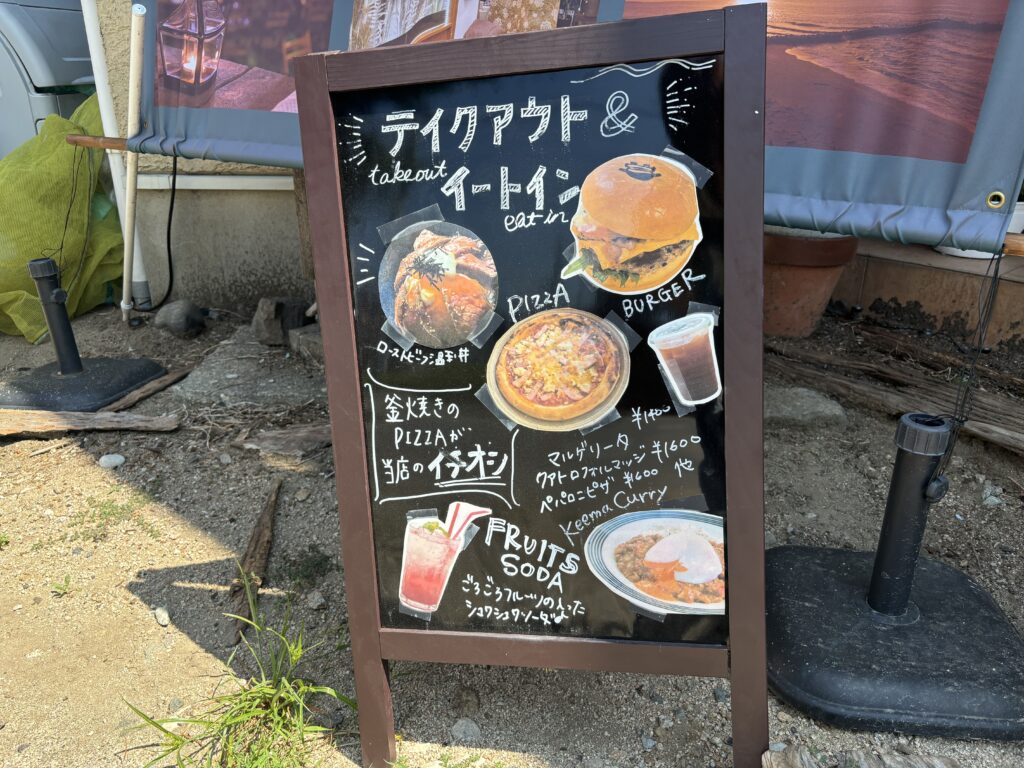 テイクアウト &
takeout
イートイン
eat in
BURGER
PIZZA
ローストビーフ温玉丼
釜焼きの
PIZZAが
当店のイチオシ
マルゲリータ ¥1400
クアトロフォルマッジ ¥1600
ペパロニピザ ¥1600 他
Keema Curry
FRUITS
SODA
ごろごろフルーツの入った
シュワシュワソーダ